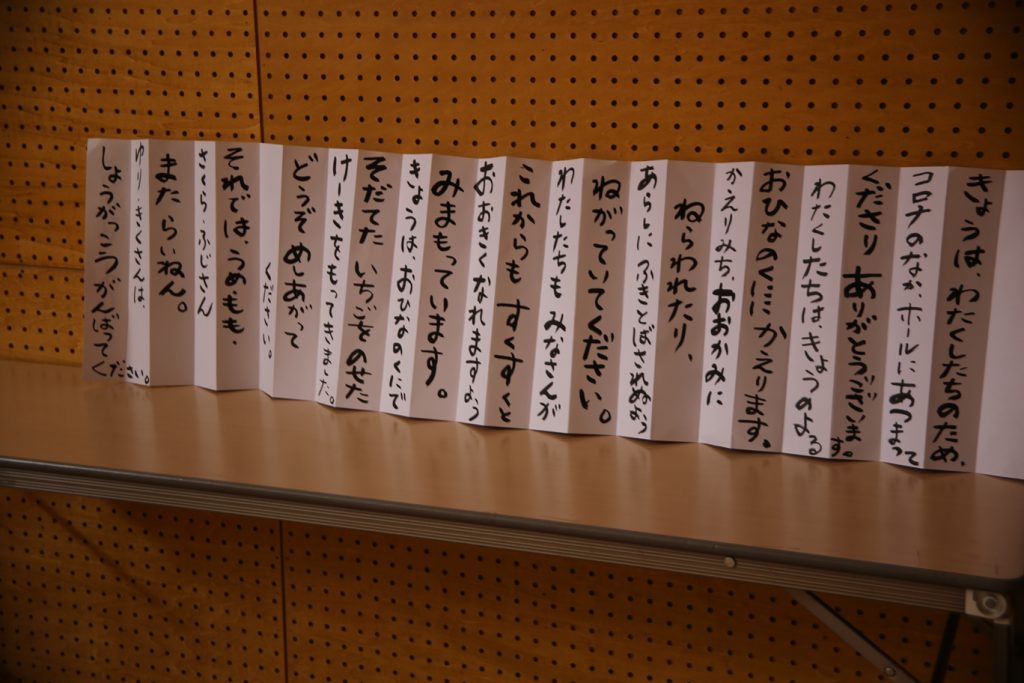 きょうは、わたくしたちのため、
コロナのなか、ホールにあつまって
くださり ありがとうございます。
わたくしたちは、きょうのよる
おひなのくにに かえります。
かえりみち、おおかみに
ねらわれたり、
あらしに ふきとばされぬよう
ねがっていてください。
わたしたちも みなさんが
これからも すくすくと
おおきくなれますよう
みまもっています。
きょうは、おひなのくにで
そだてた いちごをのせた
けーきをもってきました。
どうぞ めしあがって
ください。
それでは、うめもも、
さくら・ふじさん
また らいねん。
ゆり・きくさんは、
しょうがっこう がんばってください。